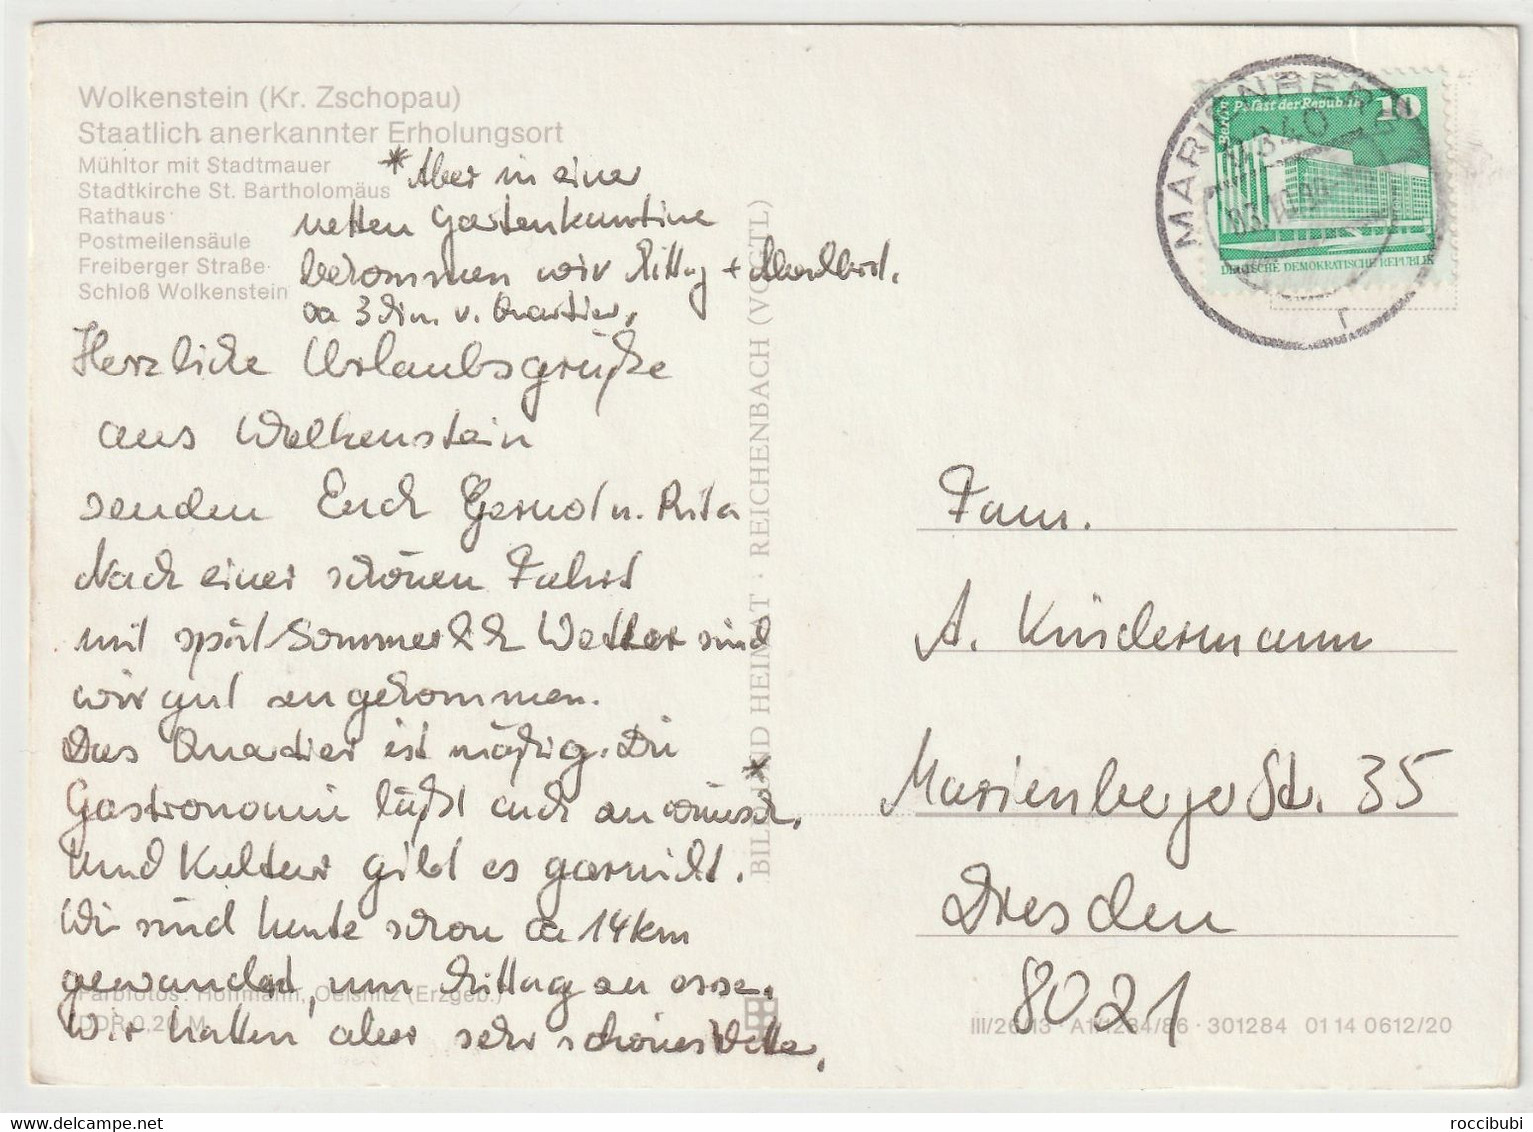 Wolkenstein (Kr. Zschopau)
Staatlich anerkannter Erholungsort
Mühltor mit Stadtmauer
Stadtkirche St. Bartholomäus
Rathaus
Postmeilensäule
Freiberger Straße
Schloß Wolkenstein
* Aber in einer
netten Gartenkantine
bekommen wir Mittag + Abendbrot.
ca 3 Min. v. Quartier.
Herzliche Urlaubsgrüße
aus Wolkenstein
senden Euch Gernot u. Rita
Nach einer schönen Fahrt
mit spätsommer Wetter sind
wir gut angekommen.
Das Quartier ist mäßig. Die
Gastronomie läßt auch zu wünsch.
*
und Kultur gibt es garnicht.
Wir sind heute schon ca 14 km
gewandert, um Mittag zu essen.
Wir hatten aber sehr schönes Wetter.
Farbfotos: Hoffmann, Oelsnitz (Erzgeb.)
DDR 0,20 M
BILD UND HEIMAT · REICHENBACH (VOGTL)
MARIENBERG
9340
03.10.90
r
Berlin Palast der Republik 10
DEUTSCHE DEMOKRATISCHE REPUBLIK
Fam.
A. Kindermann
Marienberger Str. 35
Dresden
8021
III/26/13 · A1/1284/86 · 301284 01 14 0612/20
delcampe.net
roccibubi